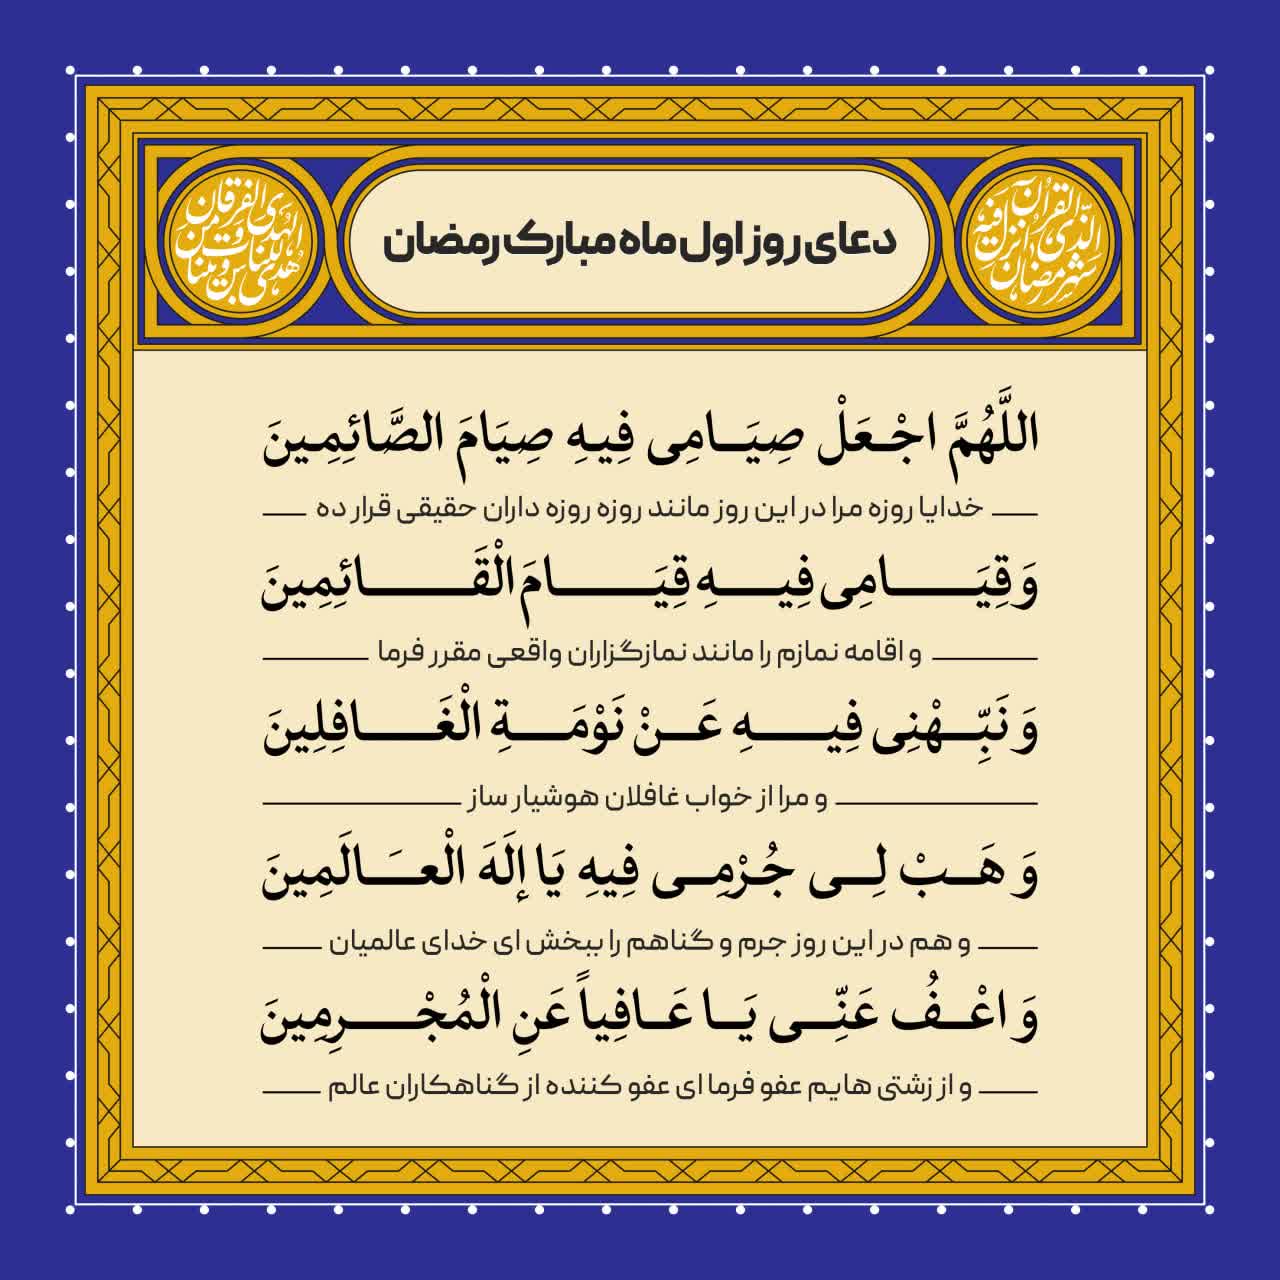 شهر رمضان الذی أنزل فیه القرآن
هدی للناس و بینات من الهدی و الفرقان
دعای روز اول ماه مبارک رمضان
اللَّهُمَّ اجْعَلْ صِيَامِی فِيهِ صِيَامَ الصَّائِمِينَ
خدایا روزه مرا در این روز مانند روزه روزه داران حقیقی قرار ده
وَ قِيَامِی فِيهِ قِيَامَ الْقَائِمِينَ
و اقامه نمازم را مانند نمازگزاران واقعی مقرر فرما
وَ نَبِّهْنِی فِيهِ عَنْ نَوْمَةِ الْغَافِلِينَ
و مرا از خواب غافلان هوشیار ساز
وَ هَبْ لِی جُرْمِی فِيهِ يَا إلَهَ الْعَالَمِينَ
و هم در این روز جرم و گناهم را ببخش ای خدای عالمیان
وَ اعْفُ عَنِّی يَا عَافِياً عَنِ الْمُجْرِمِينَ
و از زشتی هایم عفو فرما ای عفو کننده از گناهکاران عالم